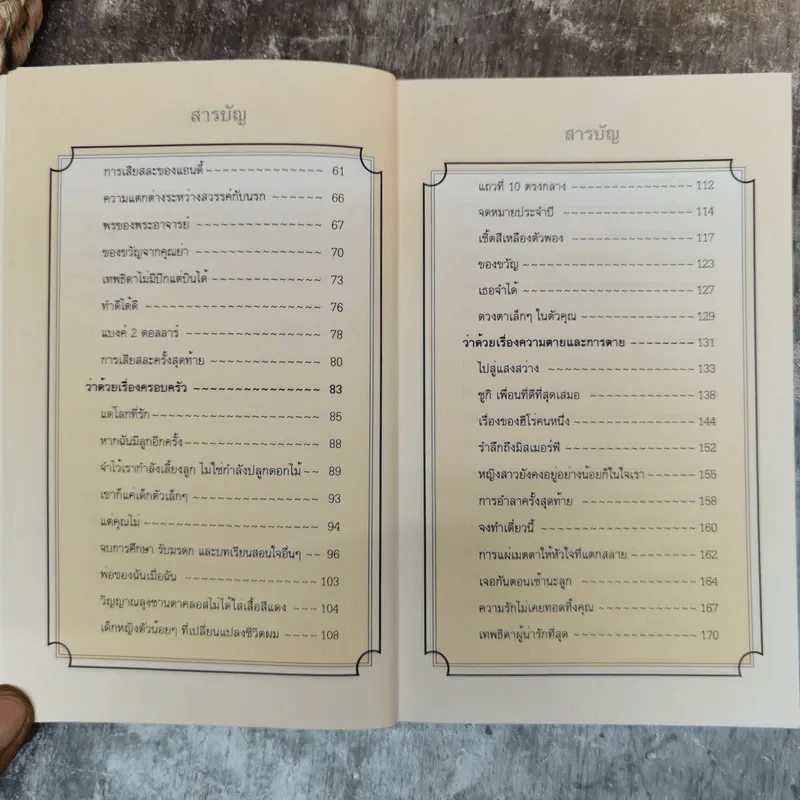 สารบัญ
การเสียสละของแอนดี้ 61
ความแตกต่างระหว่างสวรรค์กับนรก 66
พรของพระอาจารย์ 67
ของขวัญจากคุณย่า 70
เทพธิดาไม่มีปีกแต่บินได้ 73
ทำดีได้ดี 76
แบงค์ 2 ดอลลาร์ 78
การเสียสละครั้งสุดท้าย 80
ว่าด้วยเรื่องครอบครัว 83
แด่โลกที่รัก 85
หากฉันมีลูกอีกครั้ง 88
จำไว้เรากำลังเลี้ยงลูก ไม่ใช่กำลังปลูกดอกไม้ 89
เขาก็แค่เด็กตัวเล็กๆ 93
แต่คุณไม่ 94
จบการศึกษา รับมรดก และบทเรียนสอนใจอื่นๆ 96
พ่อของฉันเมื่อฉัน 103
วิญญาณลุงซานตาคลอสไม่ได้ใส่เสื้อสีแดง 104
เด็กหญิงตัวน้อยๆ ที่เปลี่ยนแปลงชีวิตผม 108
สารบัญ
แถวที่ 10 ตรงกลาง 112
จดหมายประจำปี 114
เชิ้ตสีเหลืองตัวพอง 117
ของขวัญ 123
เธอจำได้ 127
ดวงตาเล็กๆ ในตัวคุณ 129
ว่าด้วยเรื่องความตายและการตาย 131
ไปสู่แสงสว่าง 133
ซูกิ เพื่อนที่ดีที่สุดเสมอ 138
เรื่องของฮีโร่คนหนึ่ง 144
รำลึกถึงมิสเมอร์ฟี 152
หญิงสาวยังคงอยู่อย่างน้อยก็ในใจเรา 155
การอำลาครั้งสุดท้าย 158
จงทำเดี๋ยวนี้ 160
การแผ่เมตตาให้หัวใจที่แตกสลาย 162
เจอกันตอนเช้านะลูก 164
ความรักไม่เคยทอดทิ้งคุณ 167
เทพธิดาผู้น่ารักที่สุด 170